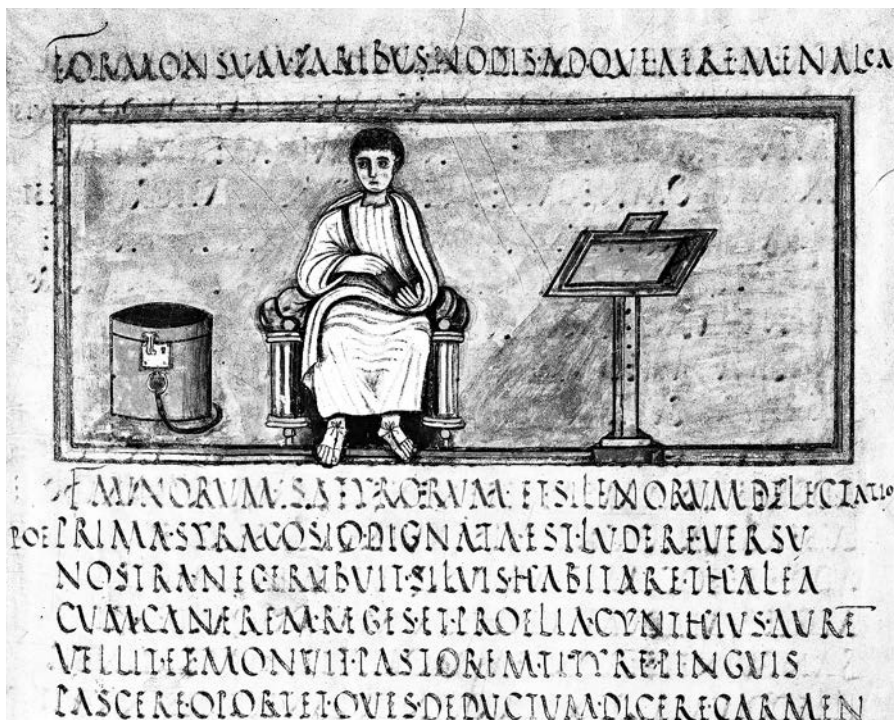 FORMONSVM·PARIBVS·NODIS·ADQVE·AERE·MENALCA
FAVNORVM·SATYRORVM·ET·SILENORVM·DELECTATIO
POE PRIMA·SYRACOSIO·DIGNATA·EST·LVDERE·VERSV
NOSTRA·NEC·ERVBVIT·SILVIS·HABITARE·THALEA
CVM·CANEREM·REGES·ET·PROELIA·CYNTHIVS·AVRĒ
VELLIT·ET·MONVIT·PASTOREM·TITYRE·PINGVIS
PASCERE·OPORTET·OVES·DEDVCTVM·DICERE·CARMEN